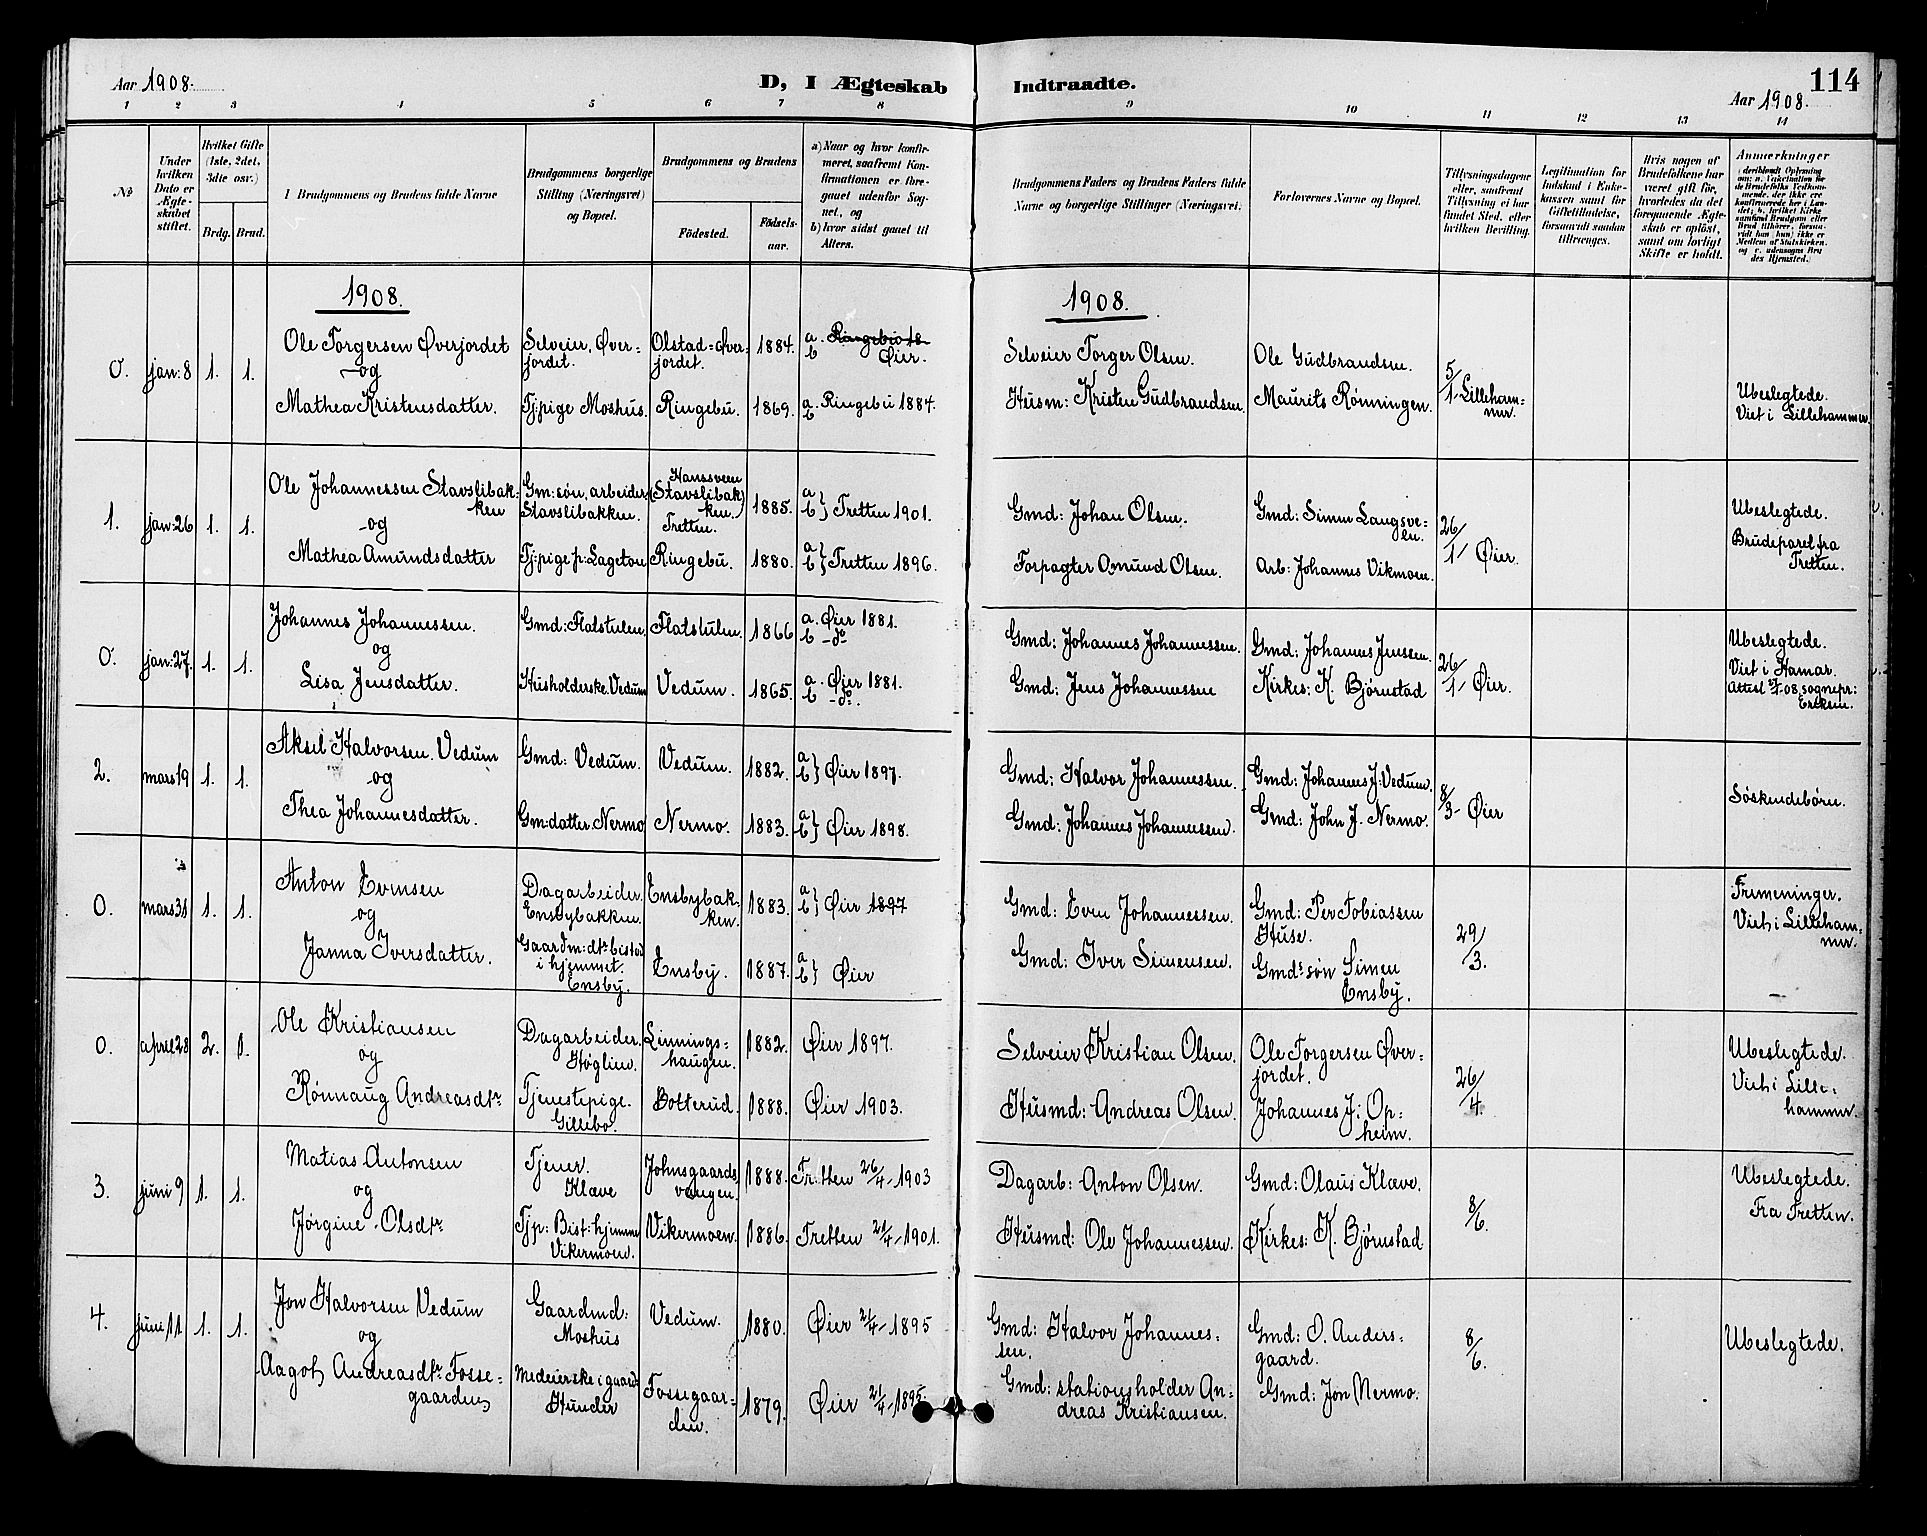 Aar 1908.
D, I Ægteskab Indtraadte.
114
Aar 1908.
1 2 3 4 5 6 7 8 9 10 11 12 13 14
No
Under hvilken Dato er Ægteskabet stiftet.
Hvilket Gifte (1ste, 2det, 3die osv.)
Brdg. Brud.
I Brudgommens og Brudens fulde Navne
Brudgommens borgerlige Stilling (Næringsvei) og Bopæl.
Brudgommens og Brudens
Fødested.
Fødselsaar.
a) Naar og hvor konfirmeret, saafremt Konfirmationen er foregaaet udenfor Sognet, og
b) hvor sidst gaaet til Alters.
Brudgommens Faders og Brudens Faders fulde Navne og borgerlige Stillinger (Næringsvei).
Forlovernes Navne og Bopæl.
Tillysningsdagene eller, saafremt Tillysning ei har fundet Sted, efter hvilken Bevilling.
Legitimation for Indskud i Enkekassen samt for Giftetilladelse, forsaavidt saadan tiltrænges.
Hvis nogen af Brudefolkene har været gift før, hvorledes da det foregaaende Ægteskab er opløst, samt om lovligt Skifte er holdt.
Anmærkninger
1908.
1908.
0. jan: 8 1. 1.
Ole Torgersen Øverjordet
og
Mathea Kristensdatter.
Selveier, Øverjordet.
Tj:pige Moshus.
Olstad=Øverjordet. 1884.
a. Ringebu 18
b Øier.
Ringebu. 1869. a. b Ringebu 1884.
Selveier Torger Olsen.
Husm: Kristen Gudbrandsen.
Ole Gudbrandsen.
Maurits Rønningen.
5/1 Lillehammer.
Ubeslegtede.
Viet i Lillehammer.
1. jan: 26 1. 1.
Ole Johannessen Stavslibakken
og
Mathea Amundsdatter
Gm: søn, arbeider, Stavslibakken.
Tj: pige p: Lageton
Hanssveen (Stavslibakken.) Tretten. 1885. a b} Tretten 1901.
Ringebu. 1880. a b} Tretten 1896.
Gmd: Johan Olsen.
Forpagter Osmund Olsen.
Gmd: Simen Langsveen.
Arb: Johannes Vikmoen.
26/1 Øier.
Ubeslegtede.
Brudeparet fra Tretten.
0. jan: 27. 1. 1.
Johannes Johannessen.
og
Lisa Jensdatter.
Gmd: Flatstulen.
Husholderske. Vedum
Flatstulen. 1866 a. Øier 1881. b -do-
Vedum. 1865. a Øier 1881. b -do-.
Gmd: Johannes Johannessen.
Gmd: Jens Johannessen
Gmd: Johannes Jenssen.
Kirkes: K. Bjørnstad
26/1 Øier.
Ubeslegtede.
Viet i Hamar.
Attest 27/1-08 sognepr: Eriksen.
2. mars 19 1. 1.
Aksel Halvorsen. Vedum
og
Thea Johannesdatter.
Gmd: Vedum.
Gm: datter. Nermo
Vedum. 1882. a b} Øier 1897.
Nermo. 1883. a b} Øier 1898.
Gmd: Halvor Johannessen.
Gmd: Johannes Johannessen.
Gmd: Johannes J: Vedum.
Gmd: John J. Nermo.
8/3 Øier
Søskendebørn.
0. mars 31 1. 1.
Anton Evensen
og
Janna Iversdatter.
Dagarbeider. Ensbybakken.
Gaardm: dtr bistad i hjemmet. Ensby.
Ensbybakken. 1883. a b} Øier 1897
Ensby. 1887. a b} Øier
Gmd: Even Johannessen.
Gmd: Iver Simensen.
Gmd: Per Tobiassen Huse.
Gmds søn Simen Ensby.
29/3.
Fremeninger.
Viet i Lillehammer.
0. april 28 2. 1.
Ole Kristiansen
og
Rønnaug Andreasdtr
Dagarbeider. Høglien.
Tjenestepige. Gillebo.
Linningshaugen. 1882. Øier 1897.
Botterud. 1888. Øier 1903.
Selveier Kristian Olsen.
Husmd: Andreas Olsen.
Ole Torgersen Øverjordet.
Johannes J: Opheim.
26/4
Ubeslegtede.
Viet i Lillehammer.
3. juni 9 1. 1.
Matias Antonsen
og
Jørgine Olsdtr
Tjener. Klæve
Tjp: Bist: hjemme Vikermoen.
Johnsgaardsvangen. 1888. Tretten 26/4-1903
Vikermoen. 1886. Tretten 21/4-1901.
Dagarb: Anton Olsen.
Husmd: Ole Johannessen.
Gmd: Olaus Klæve.
Kirkes: K. Bjørnstad
8/6.
Ubeslegtede.
Fra Tretten.
4. juni 11 1. 1.
Jon Halvorsen Vedum
og
Aagot Andreasdtr Fossegaarden
Gaardmd: Moshus
Medeierske i gaard Hunder
Vedum. 1880. Øier 21/4-1895
Fossegaarden. 1879. Øier 21/4-1895.
Gmd: Halvor Johannessen.
Gmd: stationsholder Andreas Kristiansen.
Gmd: O. Andersgaard.
Gmd: Jon Nermo.
8/6.
Ubeslegtede.